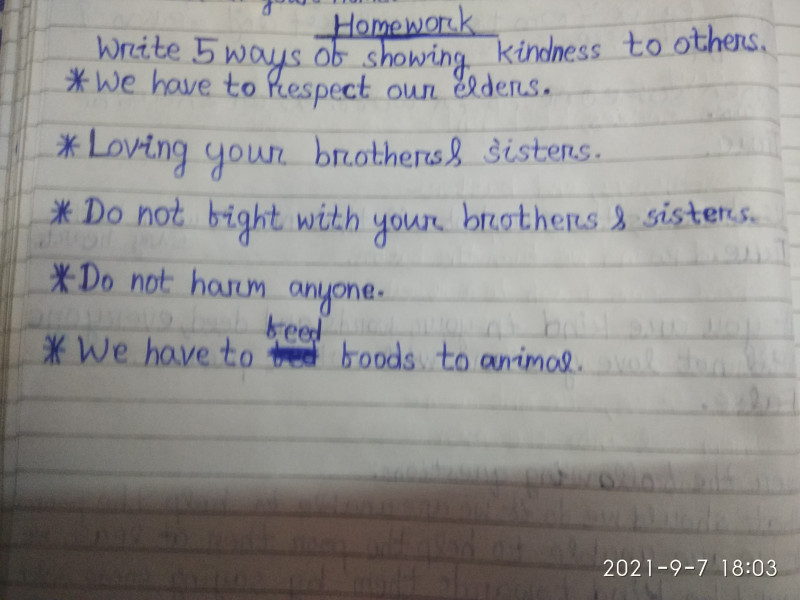 Homework
Write 5 ways of showing kindness to others.
* We have to respect our elders.
* Loving your brothers & sisters.
* Do not fight with your brothers & sisters.
* Do not harm anyone.
feed
* We have to foods to animal.
2021-9-7 18:03